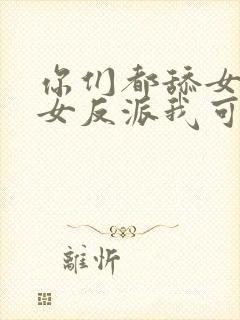 你们都舔女
女反派我可
離忻